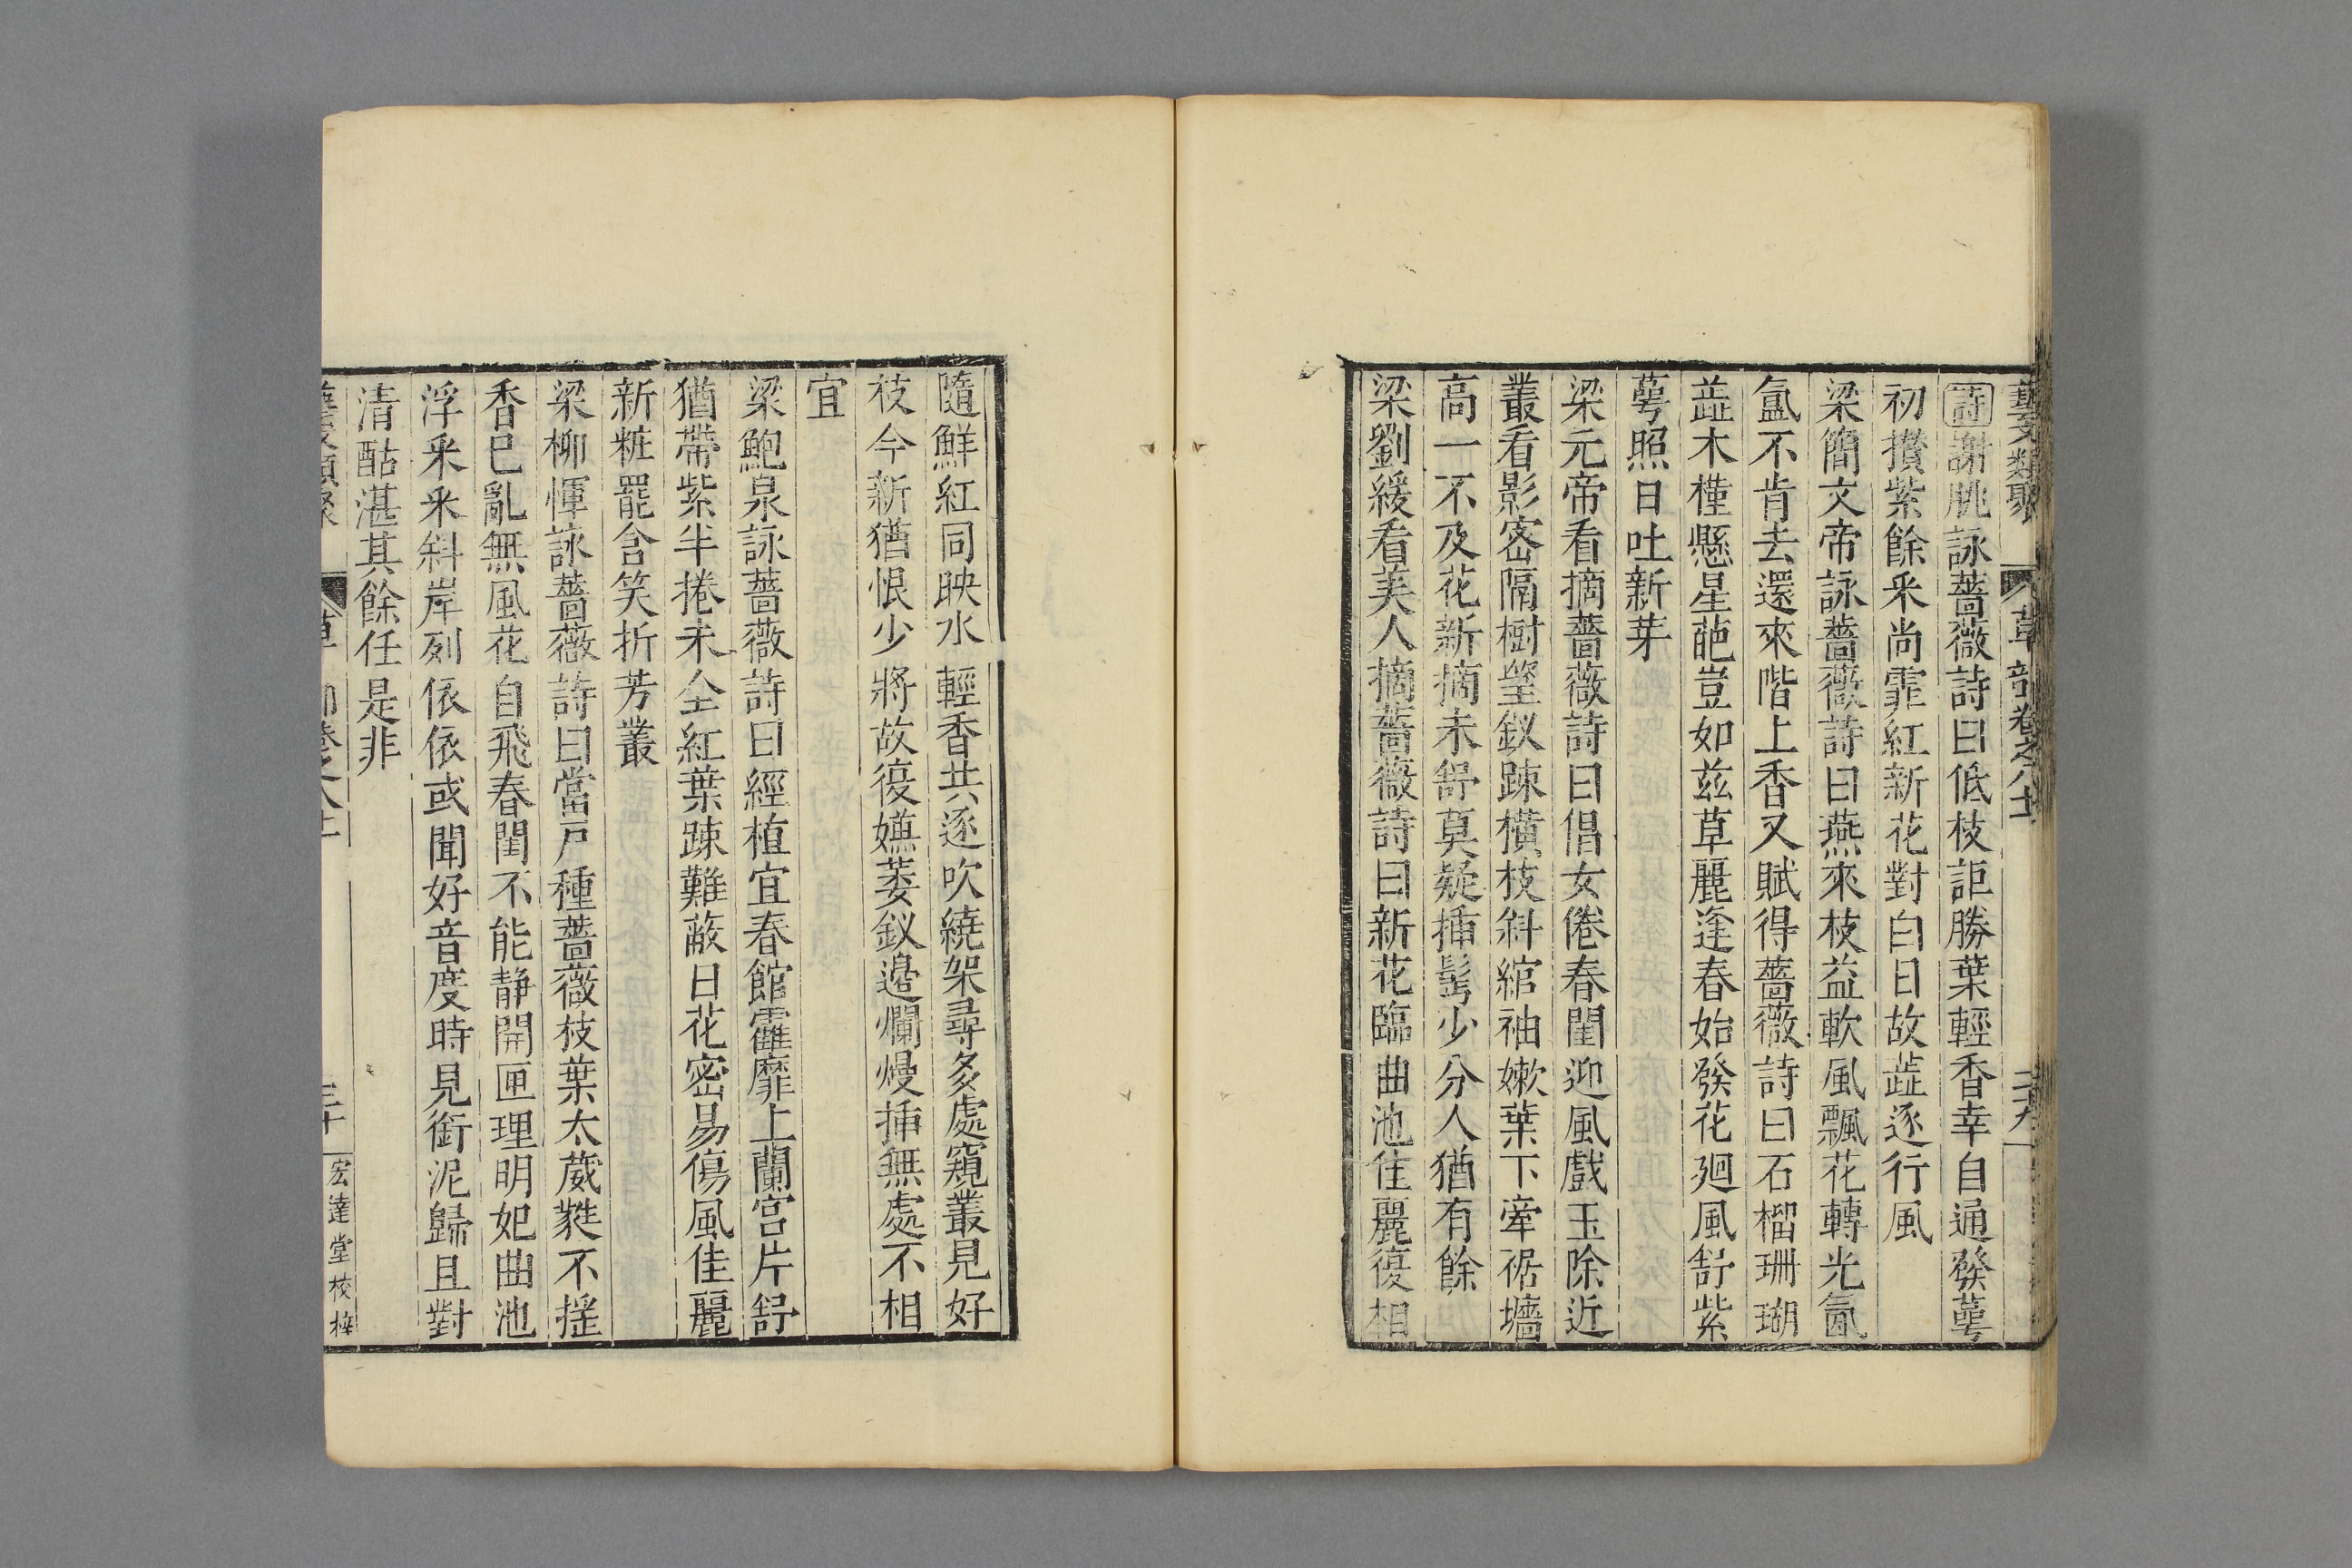 藝文類聚 草部卷之八十一 二十九
詩謝朓詠薔薇詩曰低枝詎勝葉輕香幸自通發萼
初攅紫餘采尚霏紅新花對白日故蘂逐行風
梁簡文帝詠薔薇詩曰燕來枝益軟風飄花轉光氤
氳不肯去還來階上香又賦得薔薇詩曰石榴珊瑚
蘂木槿懸星葩豈如兹草麗逢春始發花廻風舒紫
萼照日吐新芽
梁元帝看摘薔薇詩曰倡女倦春閨迎風戲玉除近
叢看影密隔樹望釵踈横枝斜綰袖嫰葉下牽裾墻
高一不及花新摘未舒莫疑揷鬂少分人猶有餘
梁劉緩看美人摘薔薇詩曰新花臨曲池佳麗復相
隨鮮紅同映水輕香共逐吹繞架尋多處窺叢見好
枝今新猶恨少將故復嫌萎釵邉爛熳揷無處不相
宜
梁鮑泉詠薔薇詩曰經植宜春館靃靡上蘭宫片舒
猶帶紫半捲未全紅葉踈難蔽日花密易傷風佳麗
新粧罷含笑折芳叢
梁柳惲詠薔薇詩曰當戸種薔薇枝葉太葳蕤不揺
香已亂無風花自飛春閨不能静開匣理明妃曲池
浮采采斜岸列依依或聞好音度時見銜泥歸且對
清酤湛其餘任是非
藝文類聚 草部卷之八十一 三十 宏達堂校梓